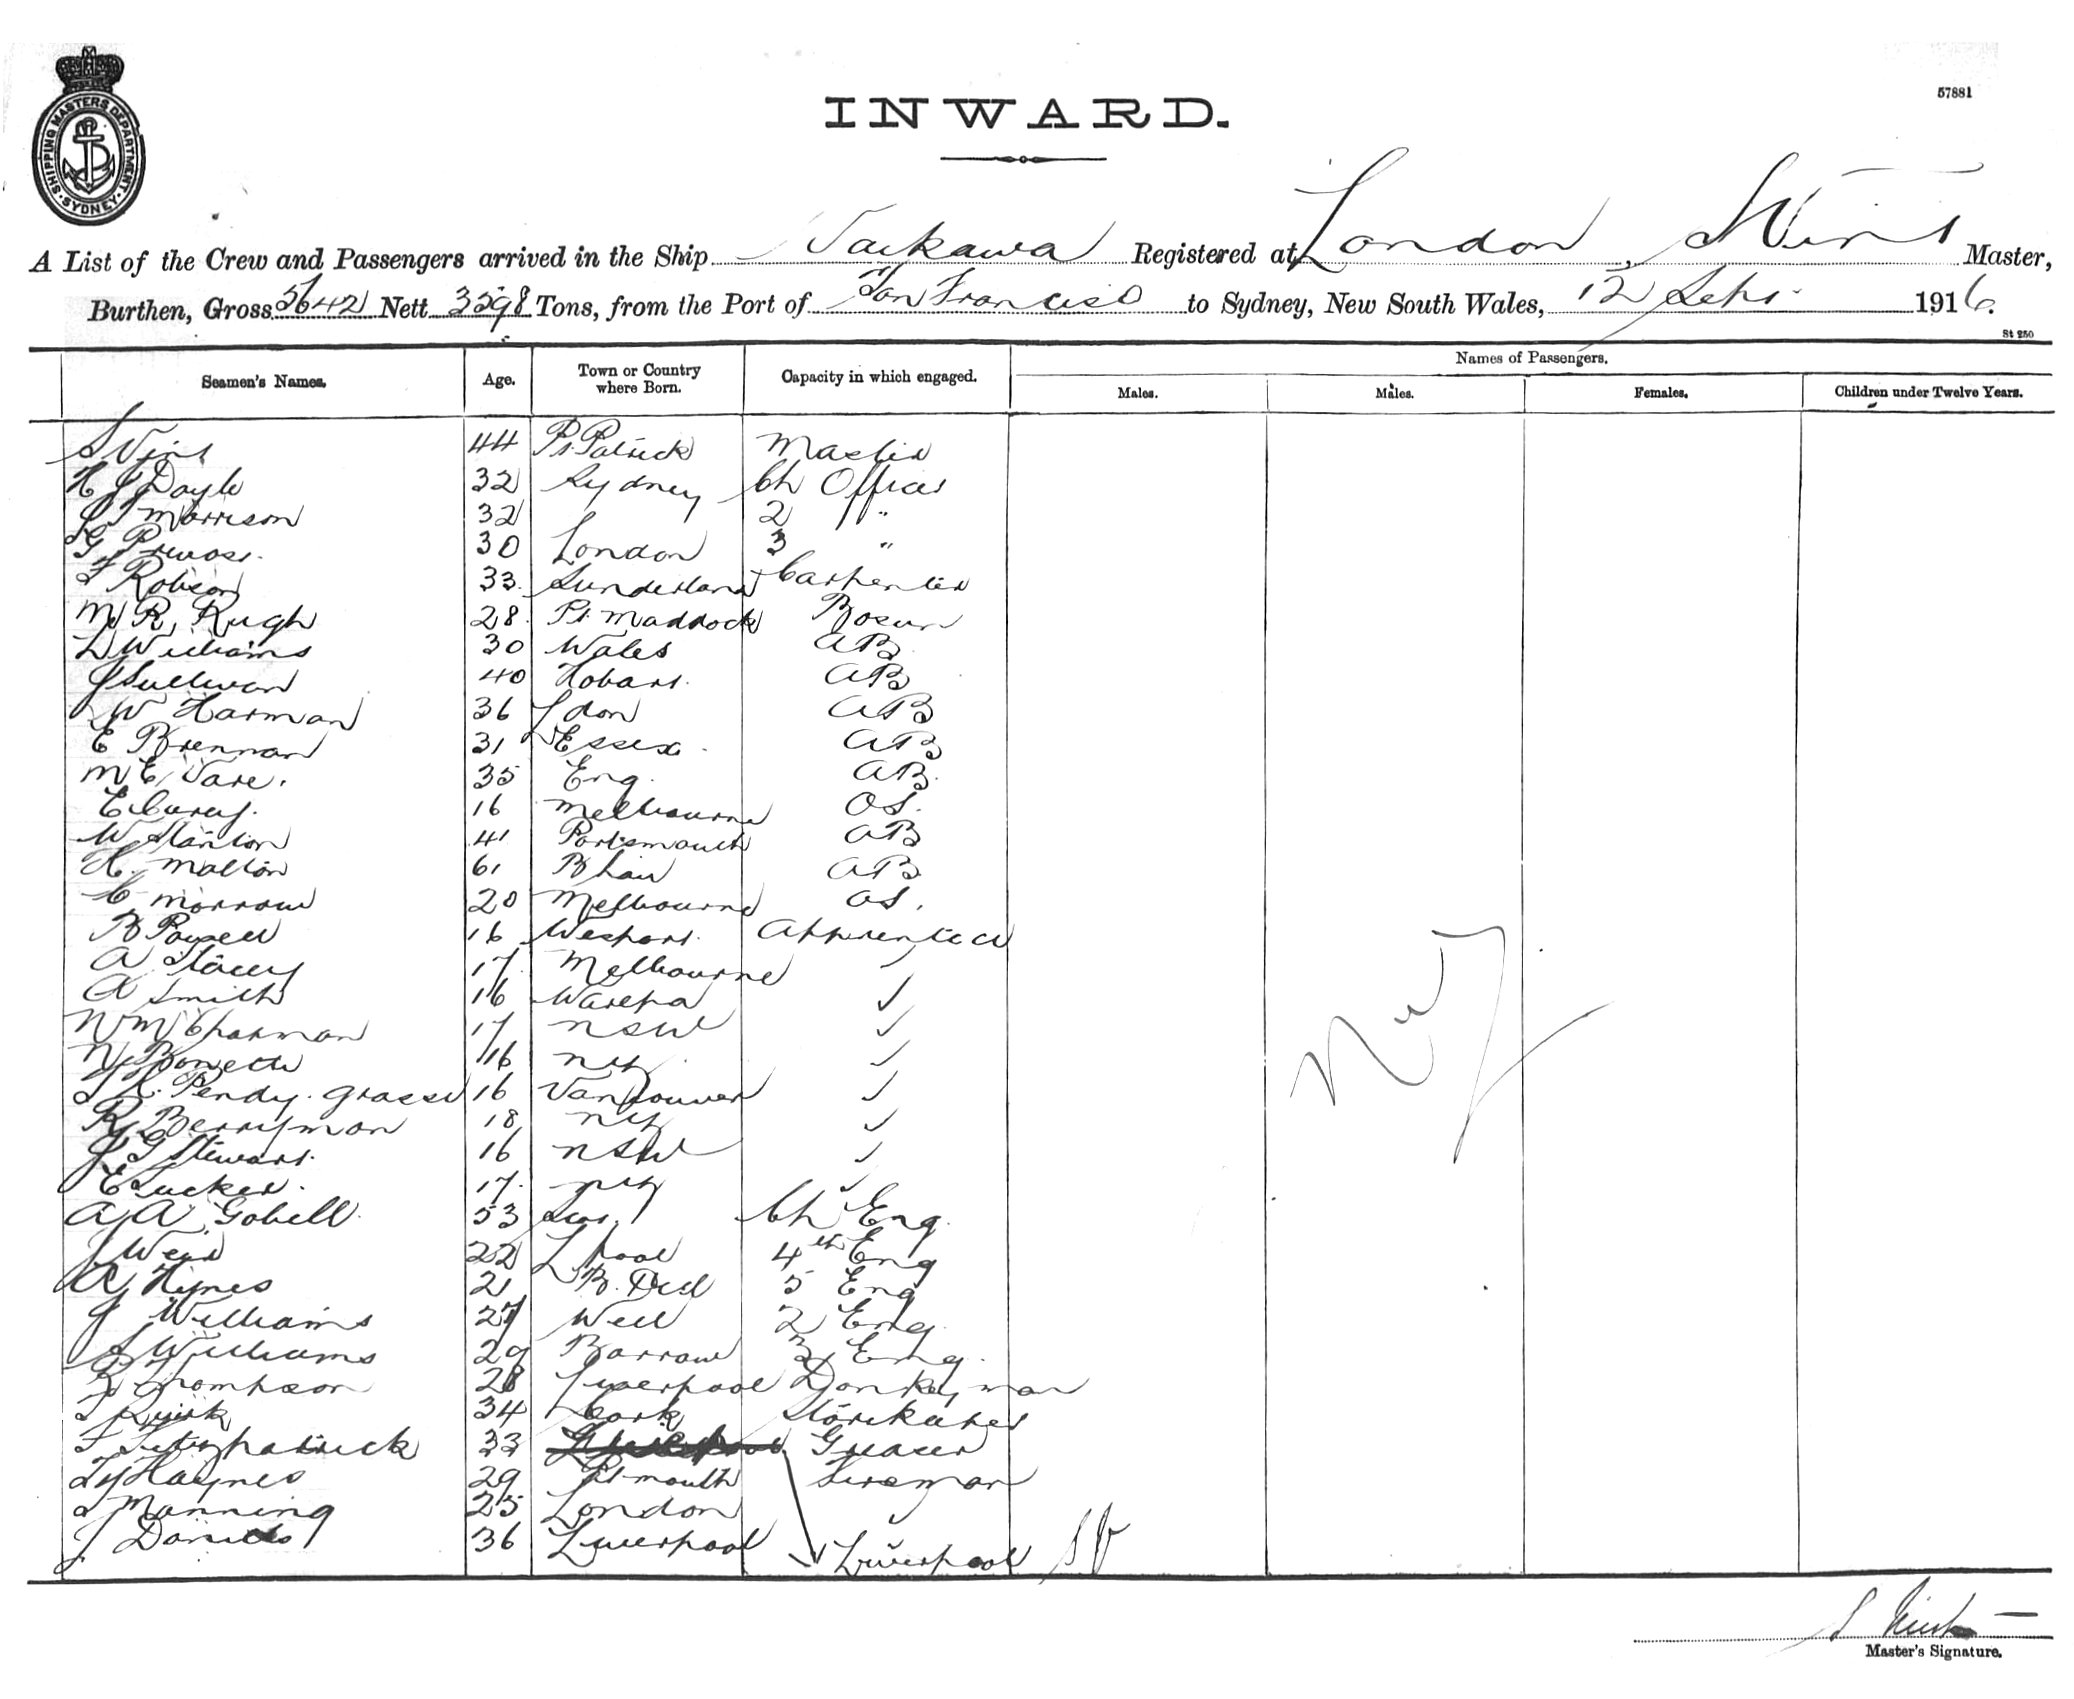 SHIPPING MASTERS DEPARTMENT SYDNEY
57881
INWARD.
A List of the Crew and Passengers arrived in the Ship Registered at London, S Vint Master,
Burthen, Gross 5642 Nett 3598 Tons, from the Port of San Francisco to Sydney, New South Wales, 12 Sept. 1916.
St 250
Seamen's Names. Age. Town or Country where Born. Capacity in which engaged. Names of Passengers.
Males. Males. Females. Children under Twelve Years.
S Vint 44 Pt. Patrick Master
H J Doyle 32 Sydney Ch Officer
Morrison 32 2 "
G Prevost. 30 London 3 "
Robson 33. Sunderland Carpenter
M R Rugh 28. Pt. Maddock Bosun
D Williams 30 Wales AB
J Sullivan 40 Hobart. AB
W Harman 36 Ldon AB
E Brennan 31 Essex. AB
M E Vare. 35 Eng. AB.
E Carey. 16 Melbourne OS.
W Stanton 41 Portsmouth AB
H. Malton 61 AB
C Morrow 20 Melbourne OS.
R 16 Westport. Apprentice
A Stacey 17 Melbourne ✓
A Smith 16 Warepa ✓
W M Chapman 17 NSW ✓
N 16 NZ ✓
Pendy. grasse 16 Vancouver ✓
R Berryman 18 NZ ✓
J G Stewart. 16 NSW ✓
E Tucker. 17. NZ ✓
A A Gobell. 53 Ch Eng.
J Weir 22 Lpool 4th Eng
A Hynes 21 5 Eng
J Williams 27 Well 2 Eng.
S Williams 29 Barrow 3 Eng.
Thompson 28 Liverpool Donkeyman
Quirk 34 Cork Storekeeper
F Fitzpatrick 33 Greaser
Haynes 29 Ptmouth Fireman
Manning 25 London ✓
J Daniels 36 Liverpool ✓
Liverpool SV
Nil
S Vint
Master's Signature.